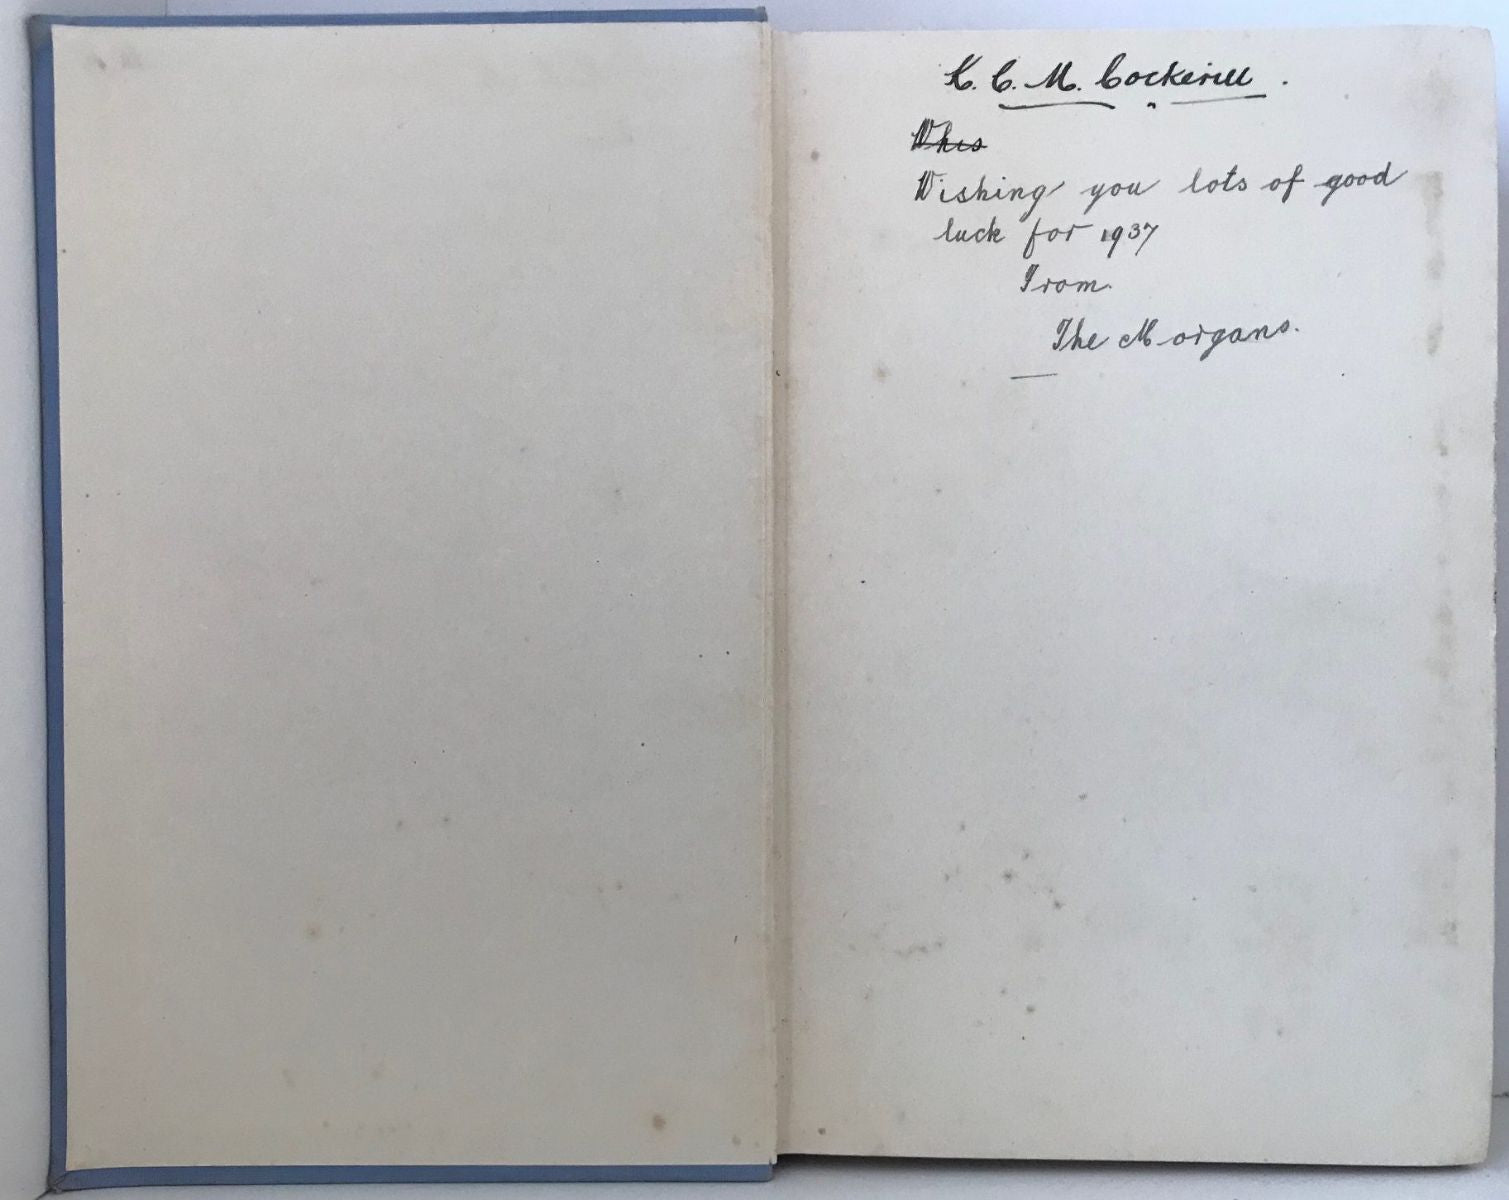 K. C. M. Cockerill.
Whis
Wishing you lots of good
luck for 1937
From.
The Morgans.